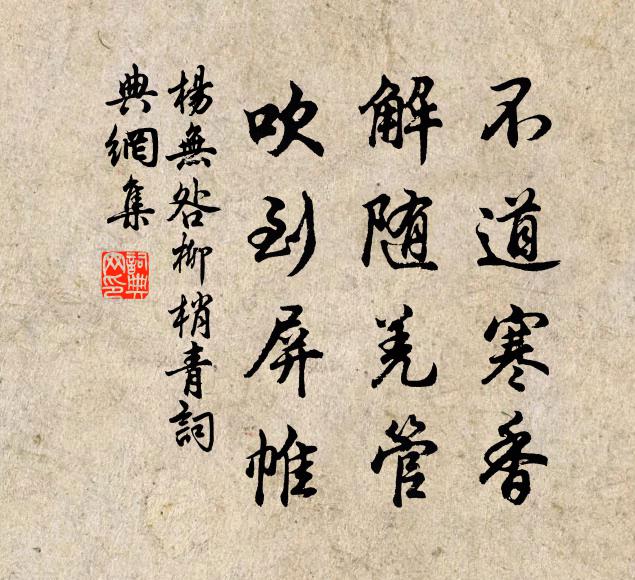 不道寒香
解随羌管
吹到屏帷
楊無咎柳梢青詞
典網集
詞典
网印